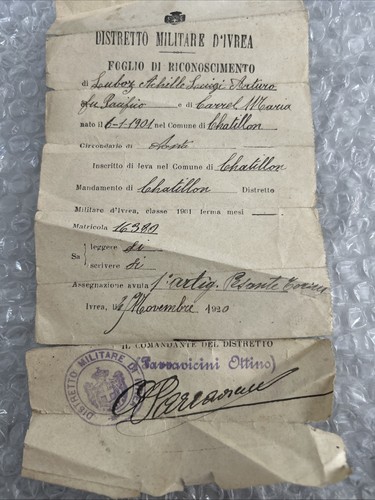 DISTRETTO MILITARE D'IVREA
FOGLIO DI RICONOSCIMENTO
di Luboz Achille Luigi Arturo
fu Pacifico e di Carrel Maria
nato il 6-1-1901 nel Comune di Chatillon
Circondario di Aosta
Inscritto di leva nel Comune di Chatillon
Mandamento di Chatillon Distretto
Militare d'Ivrea, classe 1901 ferma mesi
Matricola 16382
Sa leggere si
scrivere si
Assegnazione avuta 1° artig. Pesante
Ivrea, Novembre 1920
IL COMANDANTE DEL DISTRETTO
(Parravicini Ottino)
DISTRETTO MILITARE DI